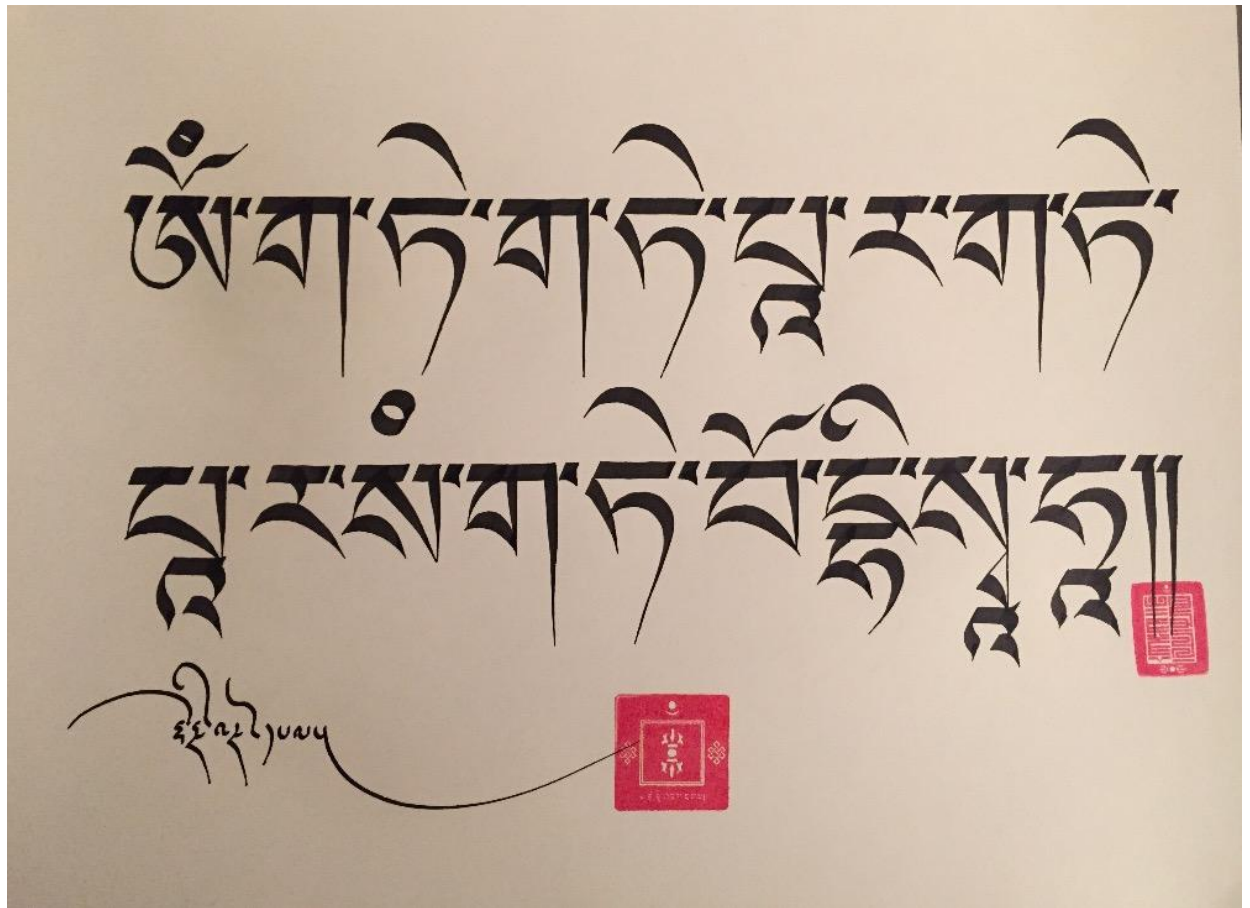 ཨོཾ་ག་ཏེ་ག་ཏེ་པཱ་ར་ག་ཏེ་
པཱ་ར་སཾ་ག་ཏེ་བོ་དྷི་སྭཱ་ཧཱ།།